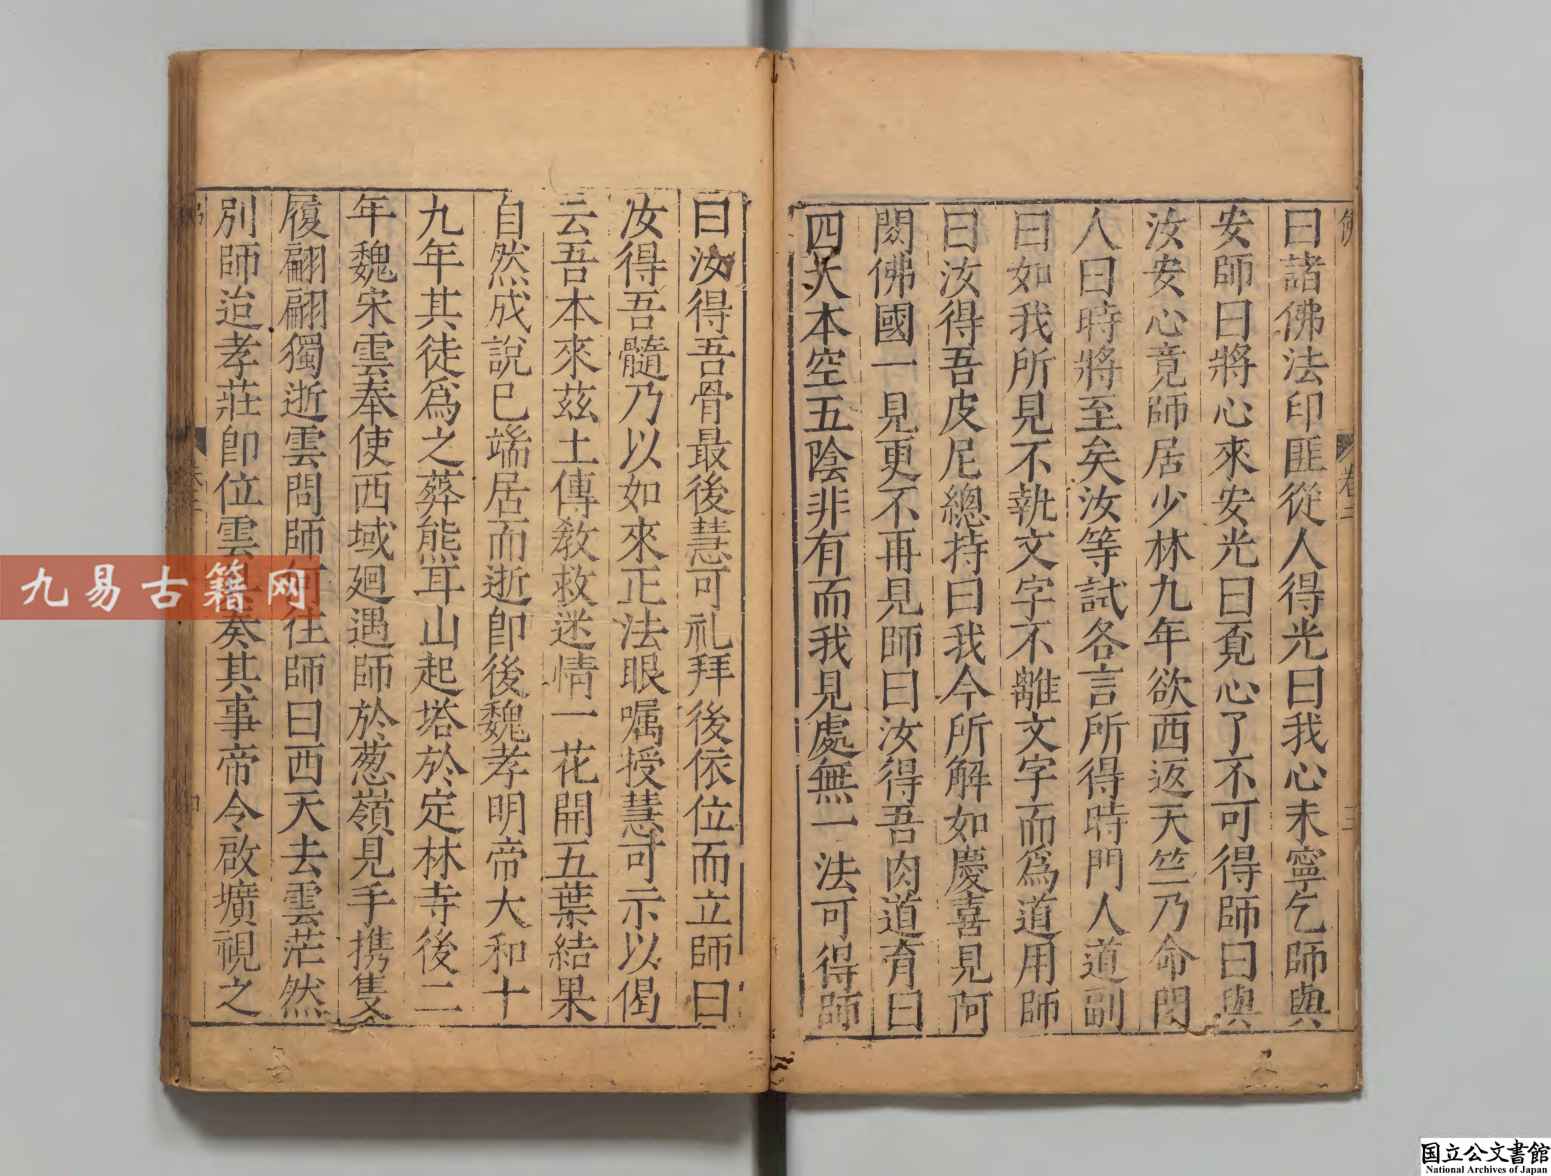 佛
卷二
三
曰諸佛法印匪從人得光曰我心未寧乞師與
安師曰將心來安光曰覓心了不可得師曰與
汝安心竟師居少林九年欲西返天竺乃命門
人曰時將至矣汝等試各言所得時門人道副
曰如我所見不執文字不離文字而爲道用師
曰汝得吾皮尼總持曰我今所解如慶喜見阿
閦佛國一見更不再見師曰汝得吾肉道育曰
四大本空五陰非有而我見處無一法可得師
曰汝得吾骨最後慧可礼拜後依位而立師曰
汝得吾髓乃以如來正法眼囑授慧可示以偈
云吾本來茲土傳教救迷情一花開五葉結果
自然成說已端居而逝卽後魏孝明帝大和十
九年其徒爲之葬熊耳山起塔於定林寺後二
年魏宋雲奉使西域廻遇師於葱嶺見手携隻
履翩翩獨逝雲問師何往師曰西天去雲茫然
別師迨孝莊卽位雲奏其事帝令啟壙視之
九易古籍网
国立公文書館
National Archives of Japan